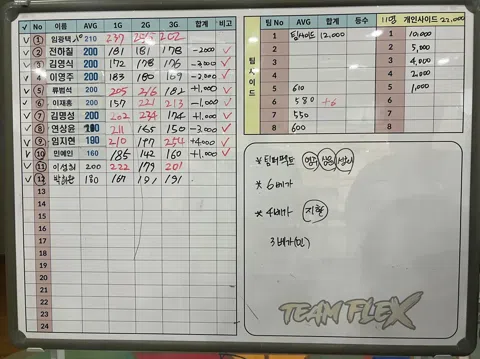 No 이름 AVG 1G 2G 3G 합계 비고
① 임광택 210 237 202
② 전하칠 200 181 181 178 -2000
③ 김영식 200 172 178 176 -3000
④ 이영주 200 183 180 169 -2,000
⑤ 류범석 200 205 216 182 +1,000
⑥ 이재홍 200 157 221 213 -1,000
⑦ 김명성 200 202 234 174 +1,000
⑧ 연상윤 211 165 150
⑨ 임지현 190 210 254 +4000
⑩ 민예인 160 185 142 160 +1,000
⑪ 이성희 200 222 179 201
⑫ 180 167 191 191
13
14
15
16
17
18
19
20
21
22
23
24
팀사이드
팀 No AVG 합계 등수
1 팀사이드 12,000
2
3
4
5 610
6 580 +6
7 550
8 600
11명 개인사이드 22,000
1 10,000
2 5,000
3 4,000
4 2,000
5 1,000
* 6배가
* 4배가 지현
TEAM FLEX